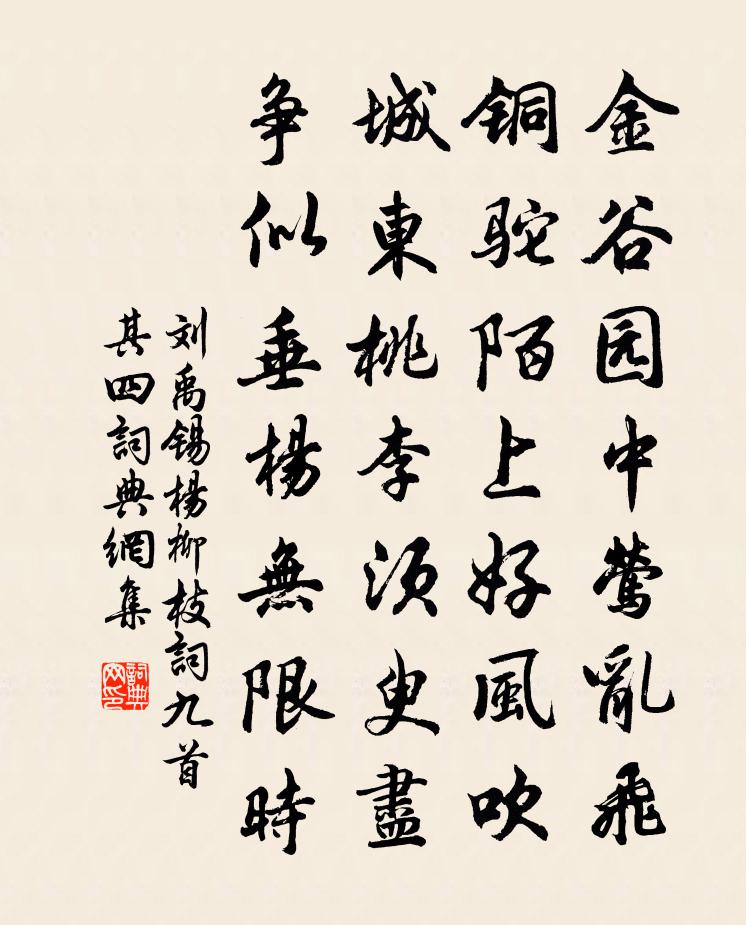 金谷园中莺亂飛
铜驼陌上好風吹
城東桃李须臾盡
争似垂楊無限時
刘禹锡楊柳枝詞九首
其四詞典網集
詞典網印